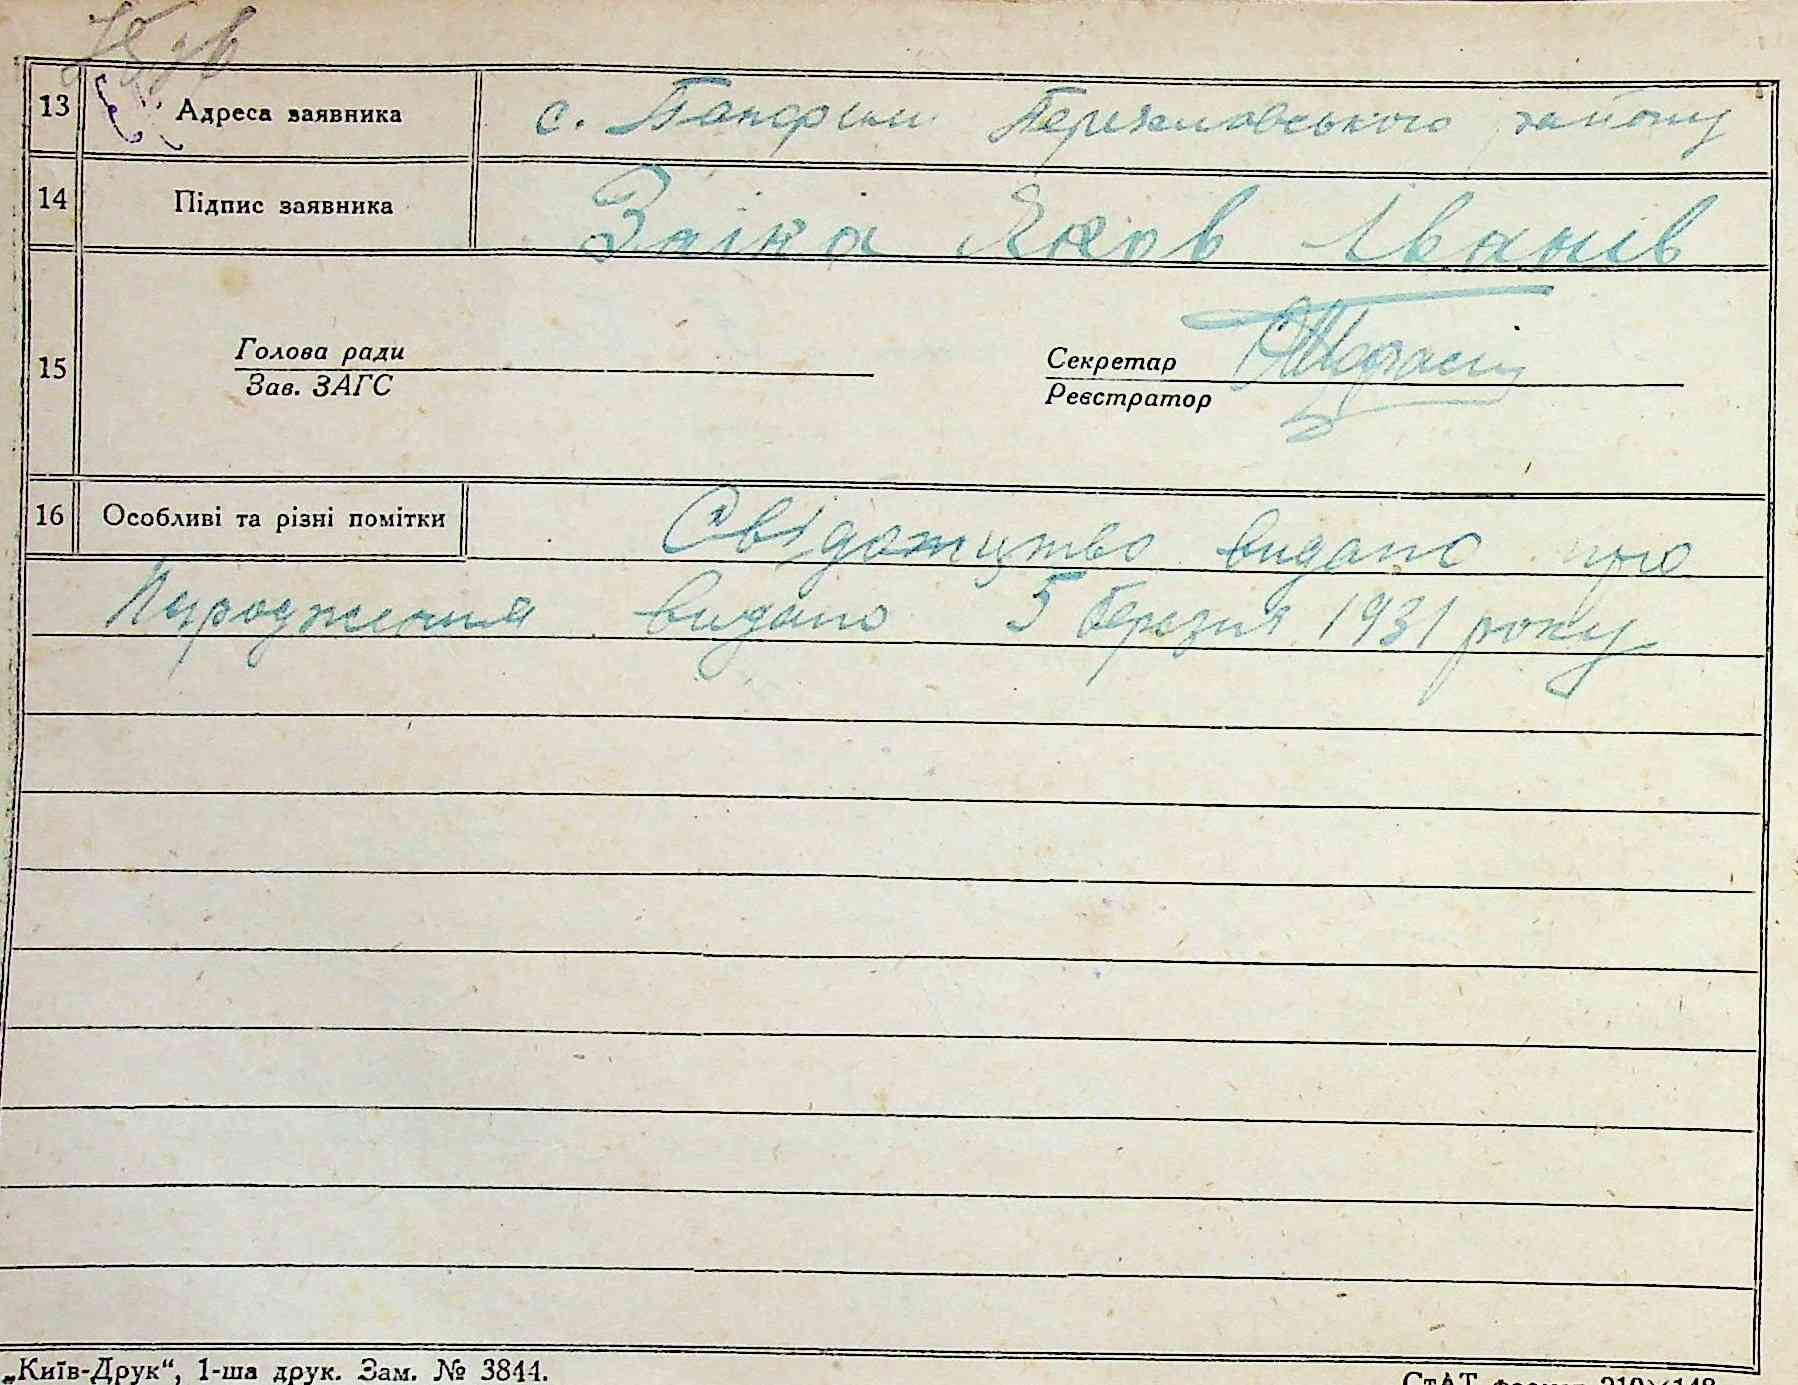 13 Адреса заявника с. Панфили Переяславського району
14 Підпис заявника Заіка Яков Іванів
15 Голова ради
Зав. ЗАГС
Секретар
Реєстратор
16 Особливі та різні помітки Свідоцтво видано про
Народження видано 5 березня 1931 року
„Київ-Друк“, 1-ша друк. Зам. № 3844.
СтАТ формат 210×148